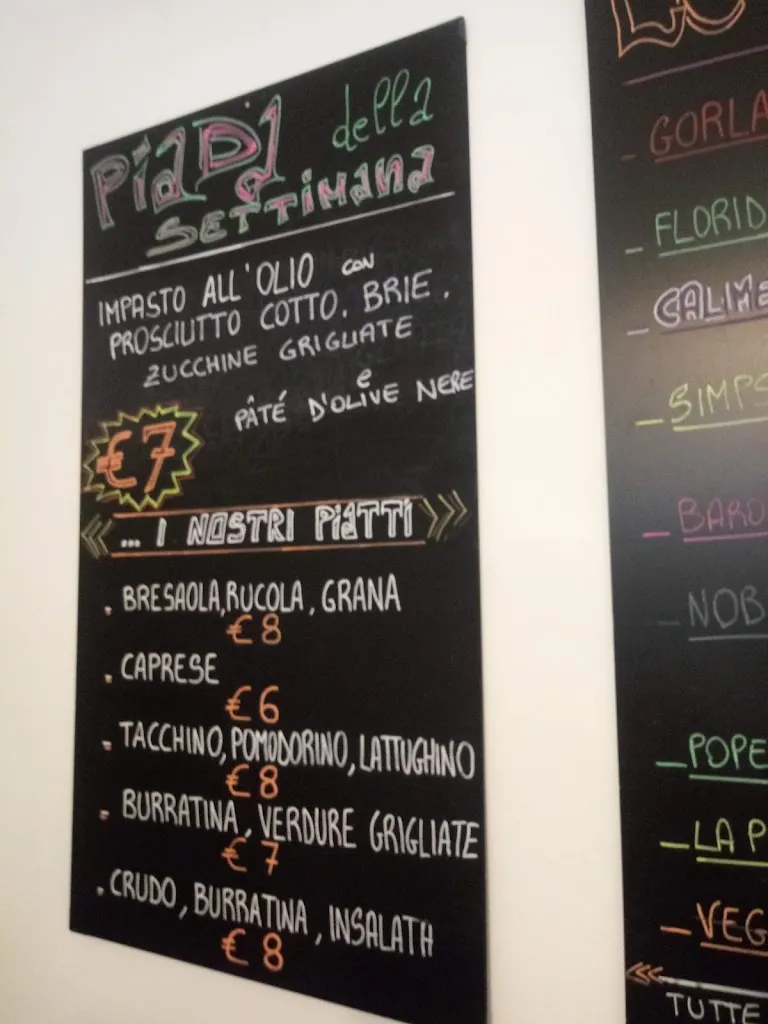 PiaDa della
SETTIMANA
IMPASTO ALL'OLIO CON
PROSCIUTTO COTTO, BRIE,
ZUCCHINE GRIGLIATE
e
PÂTÉ D'OLIVE NERE
€7
... I NOSTRI PiATTI
. BRESAOLA, RUCOLA, GRANA
€8
. CAPRESE
€6
- TACCHINO, POMODORINO, LATTUGHINO
€8
- BURRATINA, VERDURE GRIGLIATE
€7
. CRUDO, BURRATINA, INSALATA
€8
- GORLA
- FLORID
- CALIME
- SIMPS
- BARO
- NOB
- POPE
- LA P
- VEG
TUTTE